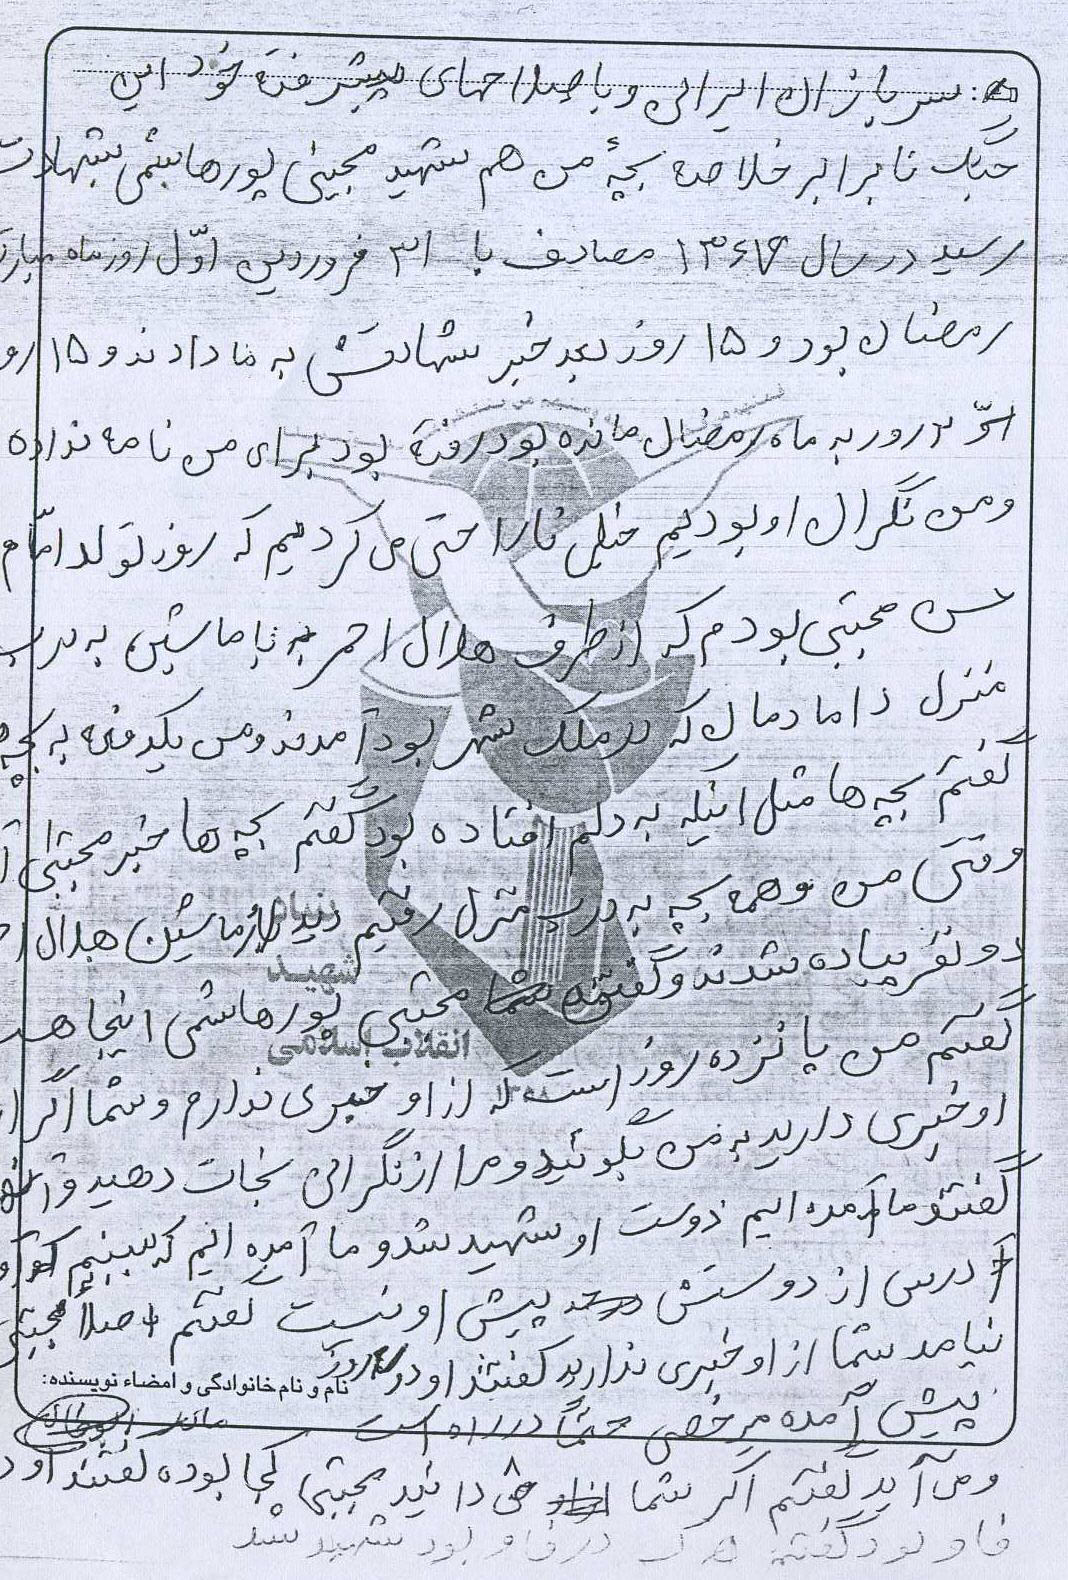 سربازان ایرانی و با صلاحهای پیشرفتهٔ خود این
جنگ نابرابر خلاصه بچهٔ من هم شهید مجتبی پورهاشمی بشهادت
رسید در سال ۱۳۶۷ مصادف با ۳۱ فروردین اوّل روز ماه مبارک
رمضان بود و ۱۵ روز بعد خبر شهادتش به ما دادند و ۱۵ رو
روز به ماه رمضان مانده بود رفته بود برای من نامه نداده
و من نگران او بودیم خیلی ناراحتی می کردیم که روز تولد امام
حسن مجتبی بودم که از طرف هلال احمر با ماشین به درب
منزل دامادمان که در ملک شهر بود آمدند و من یکدفعه به بچه
گفتم بچه ها مثل اینکه به دلم افتاده بود گفتم بچه ها خبر مجتبی
وقتی من و همه بچه به درب منزل رفتیم دید از ماشین هلال
دو نفر پیاده شدند و گفتند مجتبی پورهاشمی اینجا
گفتم من پانزده روز است که از او خبری ندارم و شما اگر
او خبری دارید به من بگوئید و مرا از نگرانی نجات دهید و
گفتند ما آمده ایم دوست او شهید شد و ما آمده ایم که ببینیم
آدرس از دوستش پیش او نیست گفتم اصلاً مجتبی
نیامد شما از او خبری ندارید گفتند او دو روز
نام و نام خانوادگی و امضاء نویسنده:
پیش آمده مرخصی حتماً در راه است
و می آید گفتم اگر شما می دانید مجتبی کجا بوده گفتند او
فاو بود گفتم در فاو بود شهید شد
بنیاد
شهید
انقلاب اسلامی